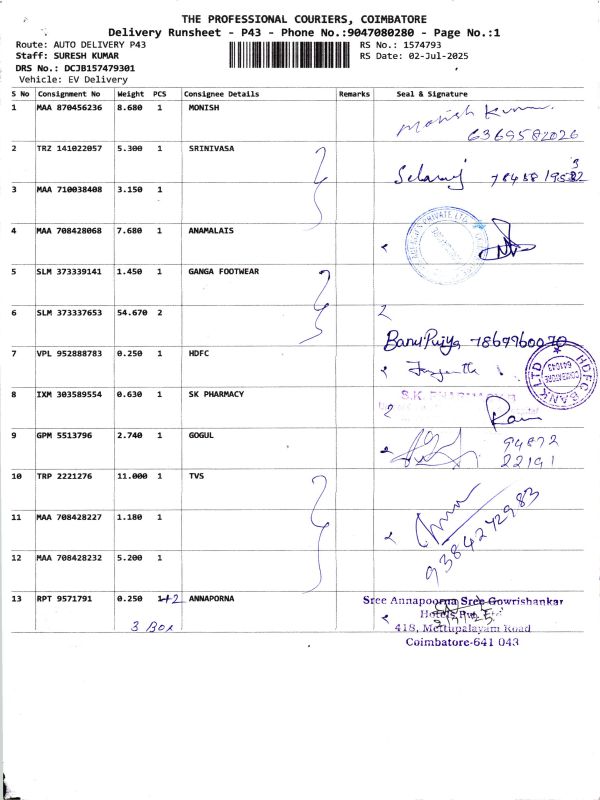 THE PROFESSIONAL COURIERS, COIMBATORE
Delivery Runsheet - P43 - Phone No.:9047080280 - Page No.:1
Route: AUTO DELIVERY P43
RS No.: 1574793
Staff: SURESH KUMAR
RS Date: 02-Jul-2025
DRS No.: DCJB157479301
Vehicle: EV Delivery
S No Consignment No Weight PCS Consignee Details Remarks Seal & Signature
1 MAA 870456236 8.680 1 MONISH Monish Kumar
6369582026
2 TRZ 141022057 5.300 1 SRINIVASA
Selaraj
3 MAA 710038408 3.150 1
4 MAA 708428068 7.680 1 ANAMALAIS
PRIVATE LTD
5 SLM 373339141 1.450 1 GANGA FOOTWEAR
6 SLM 373337653 54.670 2
Banu Priya 7867960070
7 VPL 952888783 0.250 1 HDFC
HDFC BANK LTD
COIMBATORE
641043
8 IXM 303589554 0.630 1 SK PHARMACY S.K. PHARMACY
Ram
9 GPM 5513796 2.740 1 GOGUL 94872
22191
10 TRP 2221276 11.000 1 TVS
9384272983
11 MAA 708428227 1.180 1
12 MAA 708428232 5.200 1
13 RPT 9571791 0.250 1+2 ANNAPORNA Sree Annapoorna Sree Gowrishankar
3 Box
Hotels Pvt. Ltd
418, Mettupalayam Road
Coimbatore-641 043